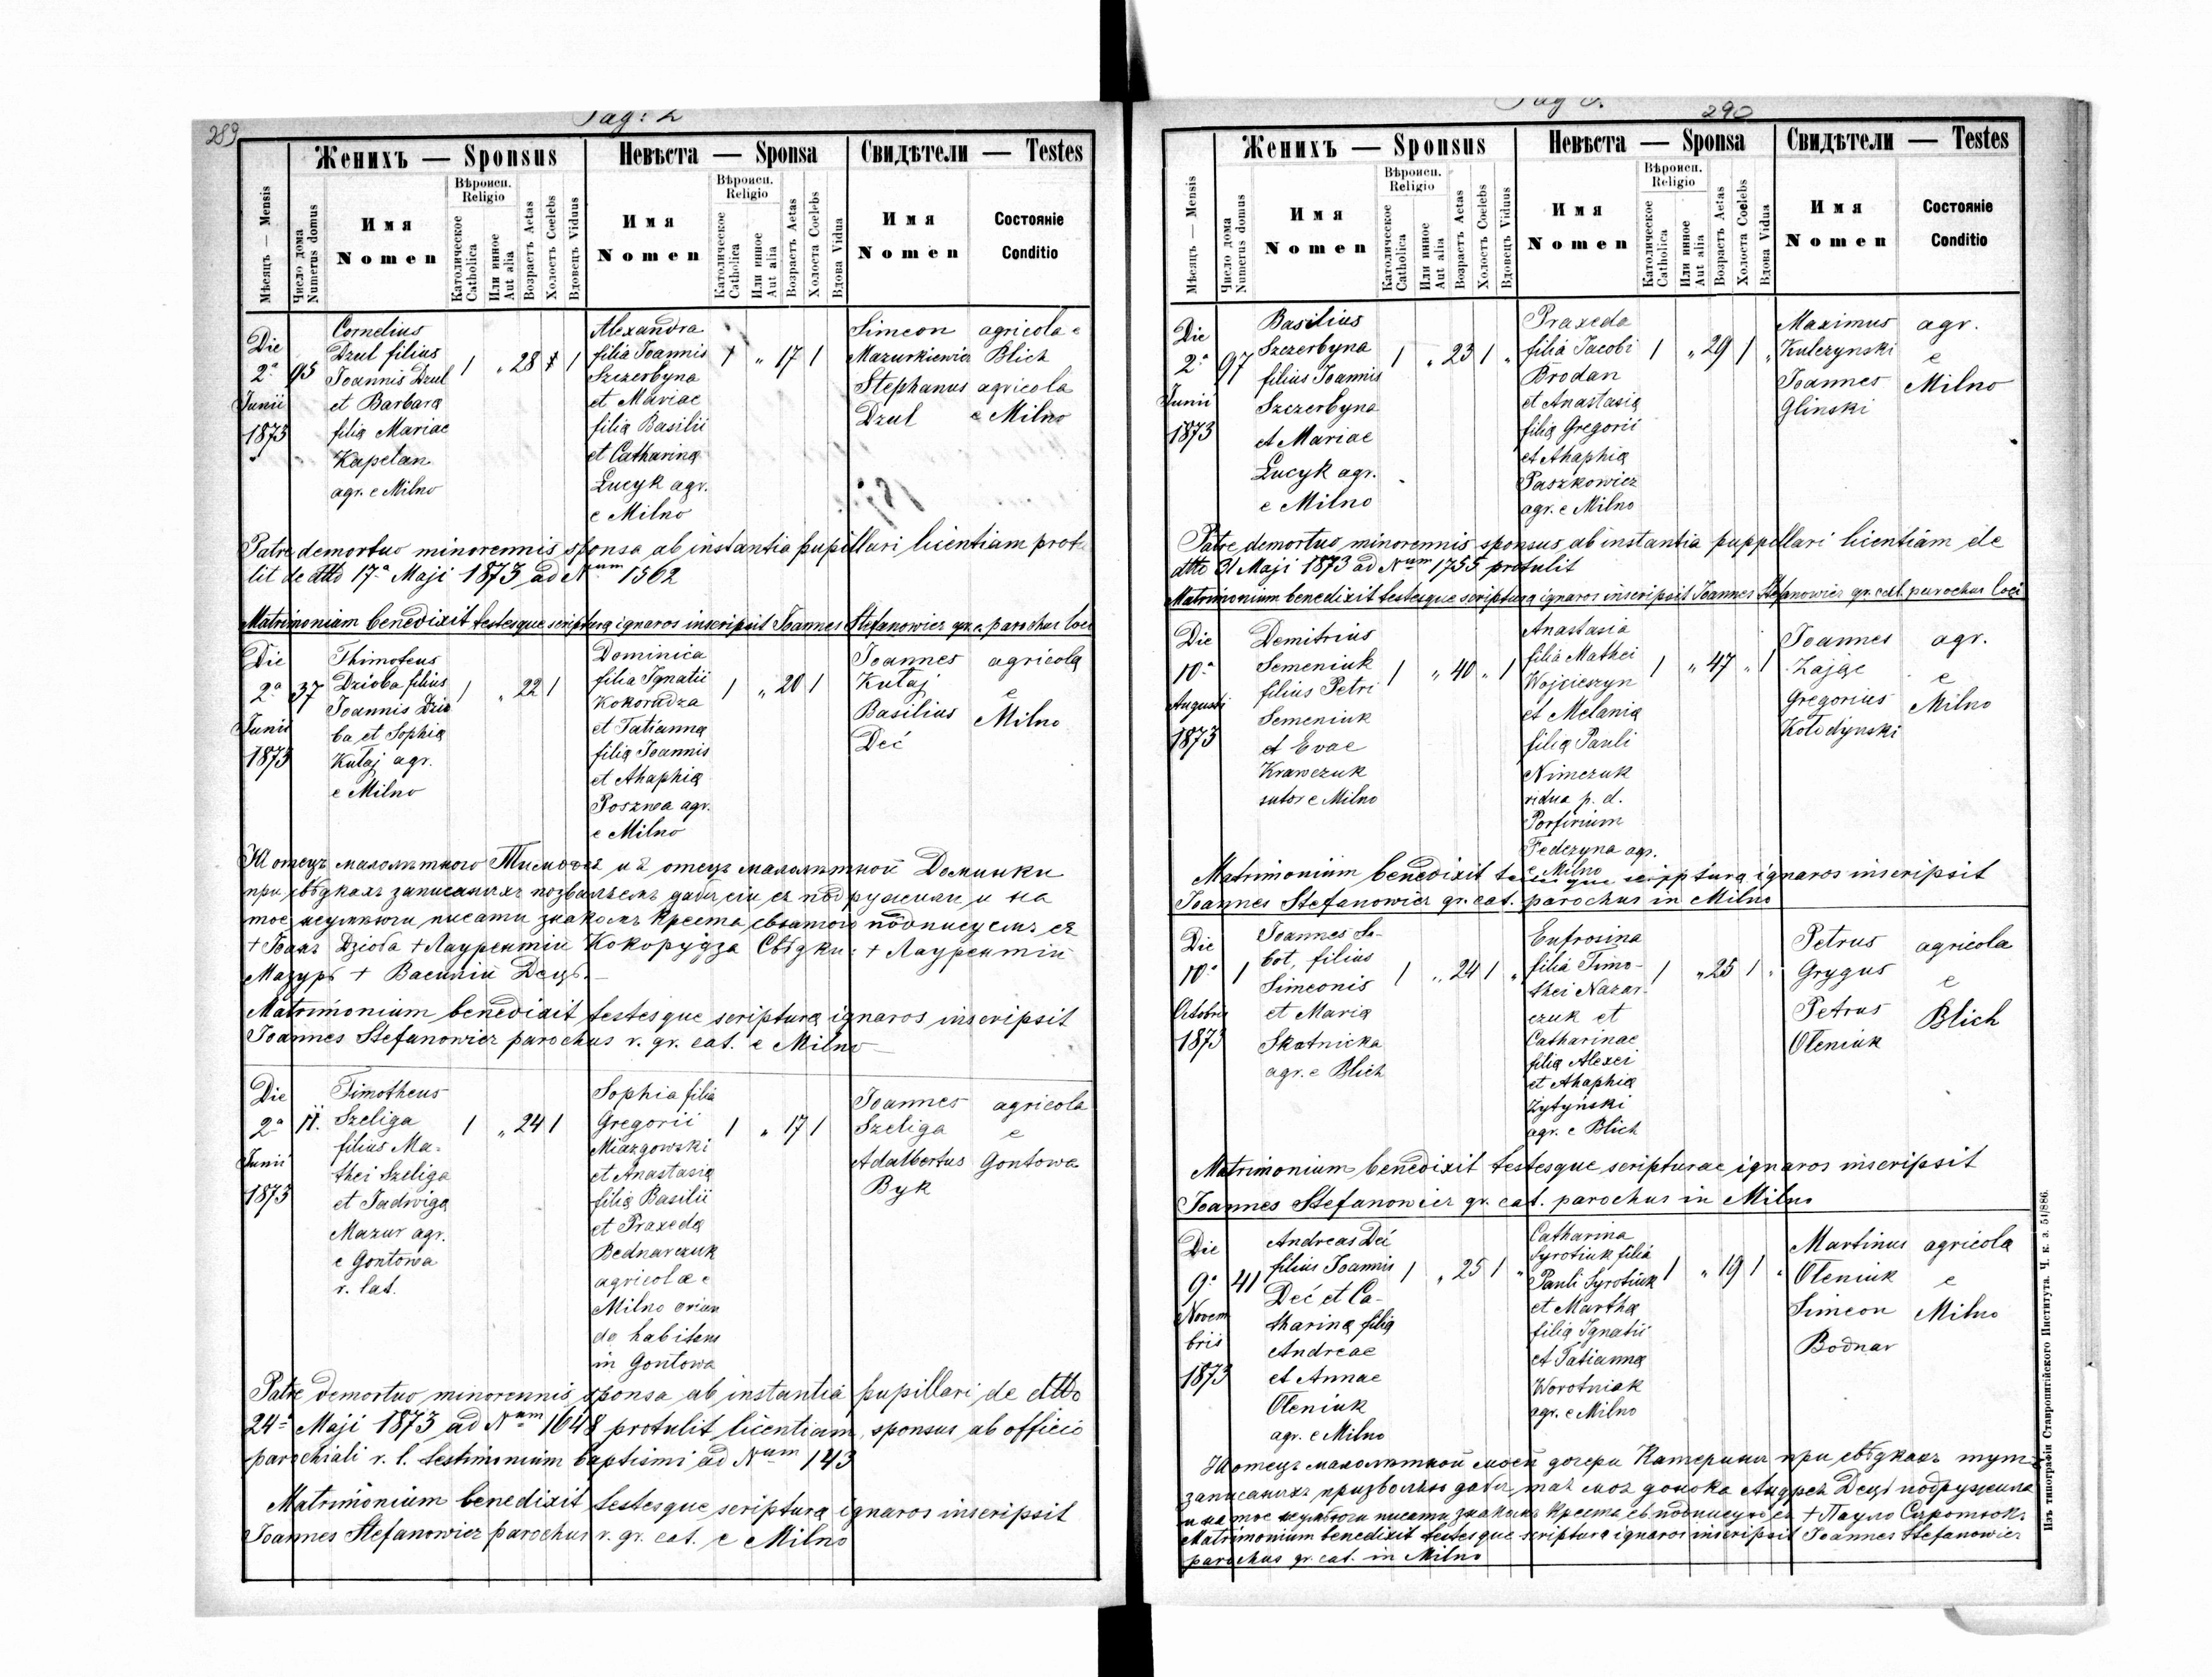 289
Pag: 2
Женихъ — Sponsus
Невѣста — Sponsa
Свидѣтели — Testes
Мѣсяцъ — Mensis
Число дома
Numerus domus
Имя
Nomen
Вѣроисп.
Religio
Католическое
Catholica
Или инное
Aut alia
Возрастъ Aetas
Холостъ Coelebs
Вдовецъ Viduus
Имя
Nomen
Вѣроисп.
Religio
Католическое
Catholica
Или инное
Aut alia
Возрастъ Aetas
Холоста Coelebs
Вдова Vidua
Имя
Nomen
Состояніе
Conditio
Die
2ª
Junii
1873
95
Cornelius
Dzul filius
Joannis Dzul
et Barbara
filia Mariae
Kapetan
agr. e Milno
1 " 28 1
Alexandra
filia Joannis
Szczerbyna
et Mariae
filia Basilii
et Catharina
Łucyk agr.
e Milno
1 " 17 1
Simeon agricola e
Mazurkiewicz Blich
Stephanus agricola
Dzul e Milno
Patre demortuo minorennis sponsa ab instantia pupillari licentiam protu
lit de dtto 17ª Maji 1873 ad Num 1562
Matrimonium benedixit testesque scriptura ignaros inscripsit Joannes Stefanowicz gr. c. parochus loci
Die
2ª
Junii
1873
37
Thimoteus
Dzioba filius
Joannis Dzio
ba, et Sophia
Kutaj agr.
e Milno
1 " 22 1
Dominica
filia Ignatii
Kokorudza
et Tatianna
filia Joannis
et Ahaphia
Poszwa agr.
e Milno
1 " 20 1
Joannes agricola
Kutaj e
Basilius Milno
Deć
Я отецъ малолѣтного Тимофея и я отецъ малолѣтной Доминики
при свѣдкахъ записаныхъ позваляемъ дабы сіи ся подружили и на
тое неумѣючи писати знакомъ Креста святого подписуемъ ся
+ Іоанъ Дзіоба + Лаурентій Кокорудза Свѣдки: + Лаурентій
Мазуръ + Василій Децъ.
Matrimonium benedixit testesque scriptura ignaros inscripsit
Joannes Stefanowicz parochus r. gr. cat. e Milno
Die
2ª
Junii
1873
11.
Timotheus
Szeliga
filius Ma-
thei Szeliga
et Jadwiga
Mazur agr.
e Gontowa
r. lat.
1 " 24 1
Sophia filia
Gregorii
Miazgowski
et Anastasia
filia Basilii
et Praxeda
Bednarczuk
agricolae e
Milno oriun
do habitans
in Gontowa
1 " 17 1
Joannes agricola
Szeliga e
Adalbertus Gontowa
Byk
Patre demortuo minorennis sponsa ab instantia pupillari de dtto
24ª Maji 1873 ad Num 1648 protulit licentiam, sponsus ab officio
parochiali r. l. testimonium baptismi ad Num 143
Matrimonium benedixit testesque scriptura ignaros inscripsit
Joannes Stefanowicz parochus r. gr. cat. e Milno
290
Женихъ — Sponsus
Невѣста — Sponsa
Свидѣтели — Testes
Мѣсяцъ — Mensis
Число дома
Numerus domus
Имя
Nomen
Вѣроисп.
Religio
Католическое
Catholica
Или инное
Aut alia
Возрастъ Aetas
Холостъ Coelebs
Вдовецъ Viduus
Имя
Nomen
Вѣроисп.
Religio
Католическое
Catholica
Или инное
Aut alia
Возрастъ Aetas
Холоста Coelebs
Вдова Vidua
Имя
Nomen
Состояніе
Conditio
Die
2ª
Junii
1873
97
Basilius
Szczerbyna
filius Joannis
Szczerbyna
et Mariae
Łucyk agr.
e Milno
1 " 23 1 "
Praxeda
filia Jacobi
Brodan
et Anastasia
filia Gregorii
et Ahaphia
Paszkowicz
agr. e Milno
1 " 29 1 "
Maximus agr.
Kulczynski e
Joannes Milno
Glinski
Patre demortuo minorennis sponsus ab instantia puppillari licentiam de
dtto 31 Maji 1873 ad Num 1755 protulit
Matrimonium benedixit testesque scriptura ignaros inscripsit Joannes Stefanowicz gr. cat. parochus loci
Die
10ª
Augusti
1873
Demitrius
Semeniuk
filius Petri
Semeniuk
et Evae
Krawczuk
sutor e Milno
1 " 40 " 1
Anastasia
filia Mathei
Wojcieszyn
et Melania
filia Pauli
Nimczuk
vidua p. d.
Porfirium
Fedczyna agr.
e Milno
1 " 47 " 1
Joannes agr.
Zając e
Gregorius Milno
Kołodynski
Matrimonium benedixit testesque scripptura ignaros inscripsit
Joannes Stefanowicz gr. cat. parochus in Milno
Die
10ª
Octobris
1873
1
Joannes So-
bot, filius
Simeonis
et Maria
Skotnicka
agr. e Blich
1 " 24 1 "
Eufrosina
filia Timo-
thei Nazar-
czuk et
Catharinae
filia Alexei
et Ahaphia
Żytyński
agr. e Blich
1 " 25 1 "
Petrus agricola
Grygus e
Petrus Blich
Oleniuk
Matrimonium benedixit testesque scripturae ignaros inscripsit
Joannes Stefanowicz gr. cat. parochus in Milno
Die
9ª
Novem
bris
1873
41
Andreas Deć
filius Joannis
Deć et Ca-
tharina filia
Andreae
et Annae
Oleniuk
agr. e Milno
1 " 25 1 "
Catharina
Syrotiuk filia
Pauli Syrotiuk
et Martha
filia Ignatii
et Tatianna
Worotniak
agr. e Milno
1 " 19 1 "
Martinus agricola
Oleniuk e
Simeon Milno
Bodnar
Я отецъ малолѣтной моей дочери Катерины при свѣдкахъ тутъ
записаныхъ призволяю дабы таж моя донька Андрея Децъ подружила
и на тое неумѣючи писати знакомъ Креста св. подписую ся + Пауло Сыротюкъ
Matrimonium benedixit testesque scriptura ignaros inscripsit Joannes Stefanowicz
parochus gr. cat. in Milno
Изъ типографіи Ставропигійского Института. Ч. к. з. 51/886.